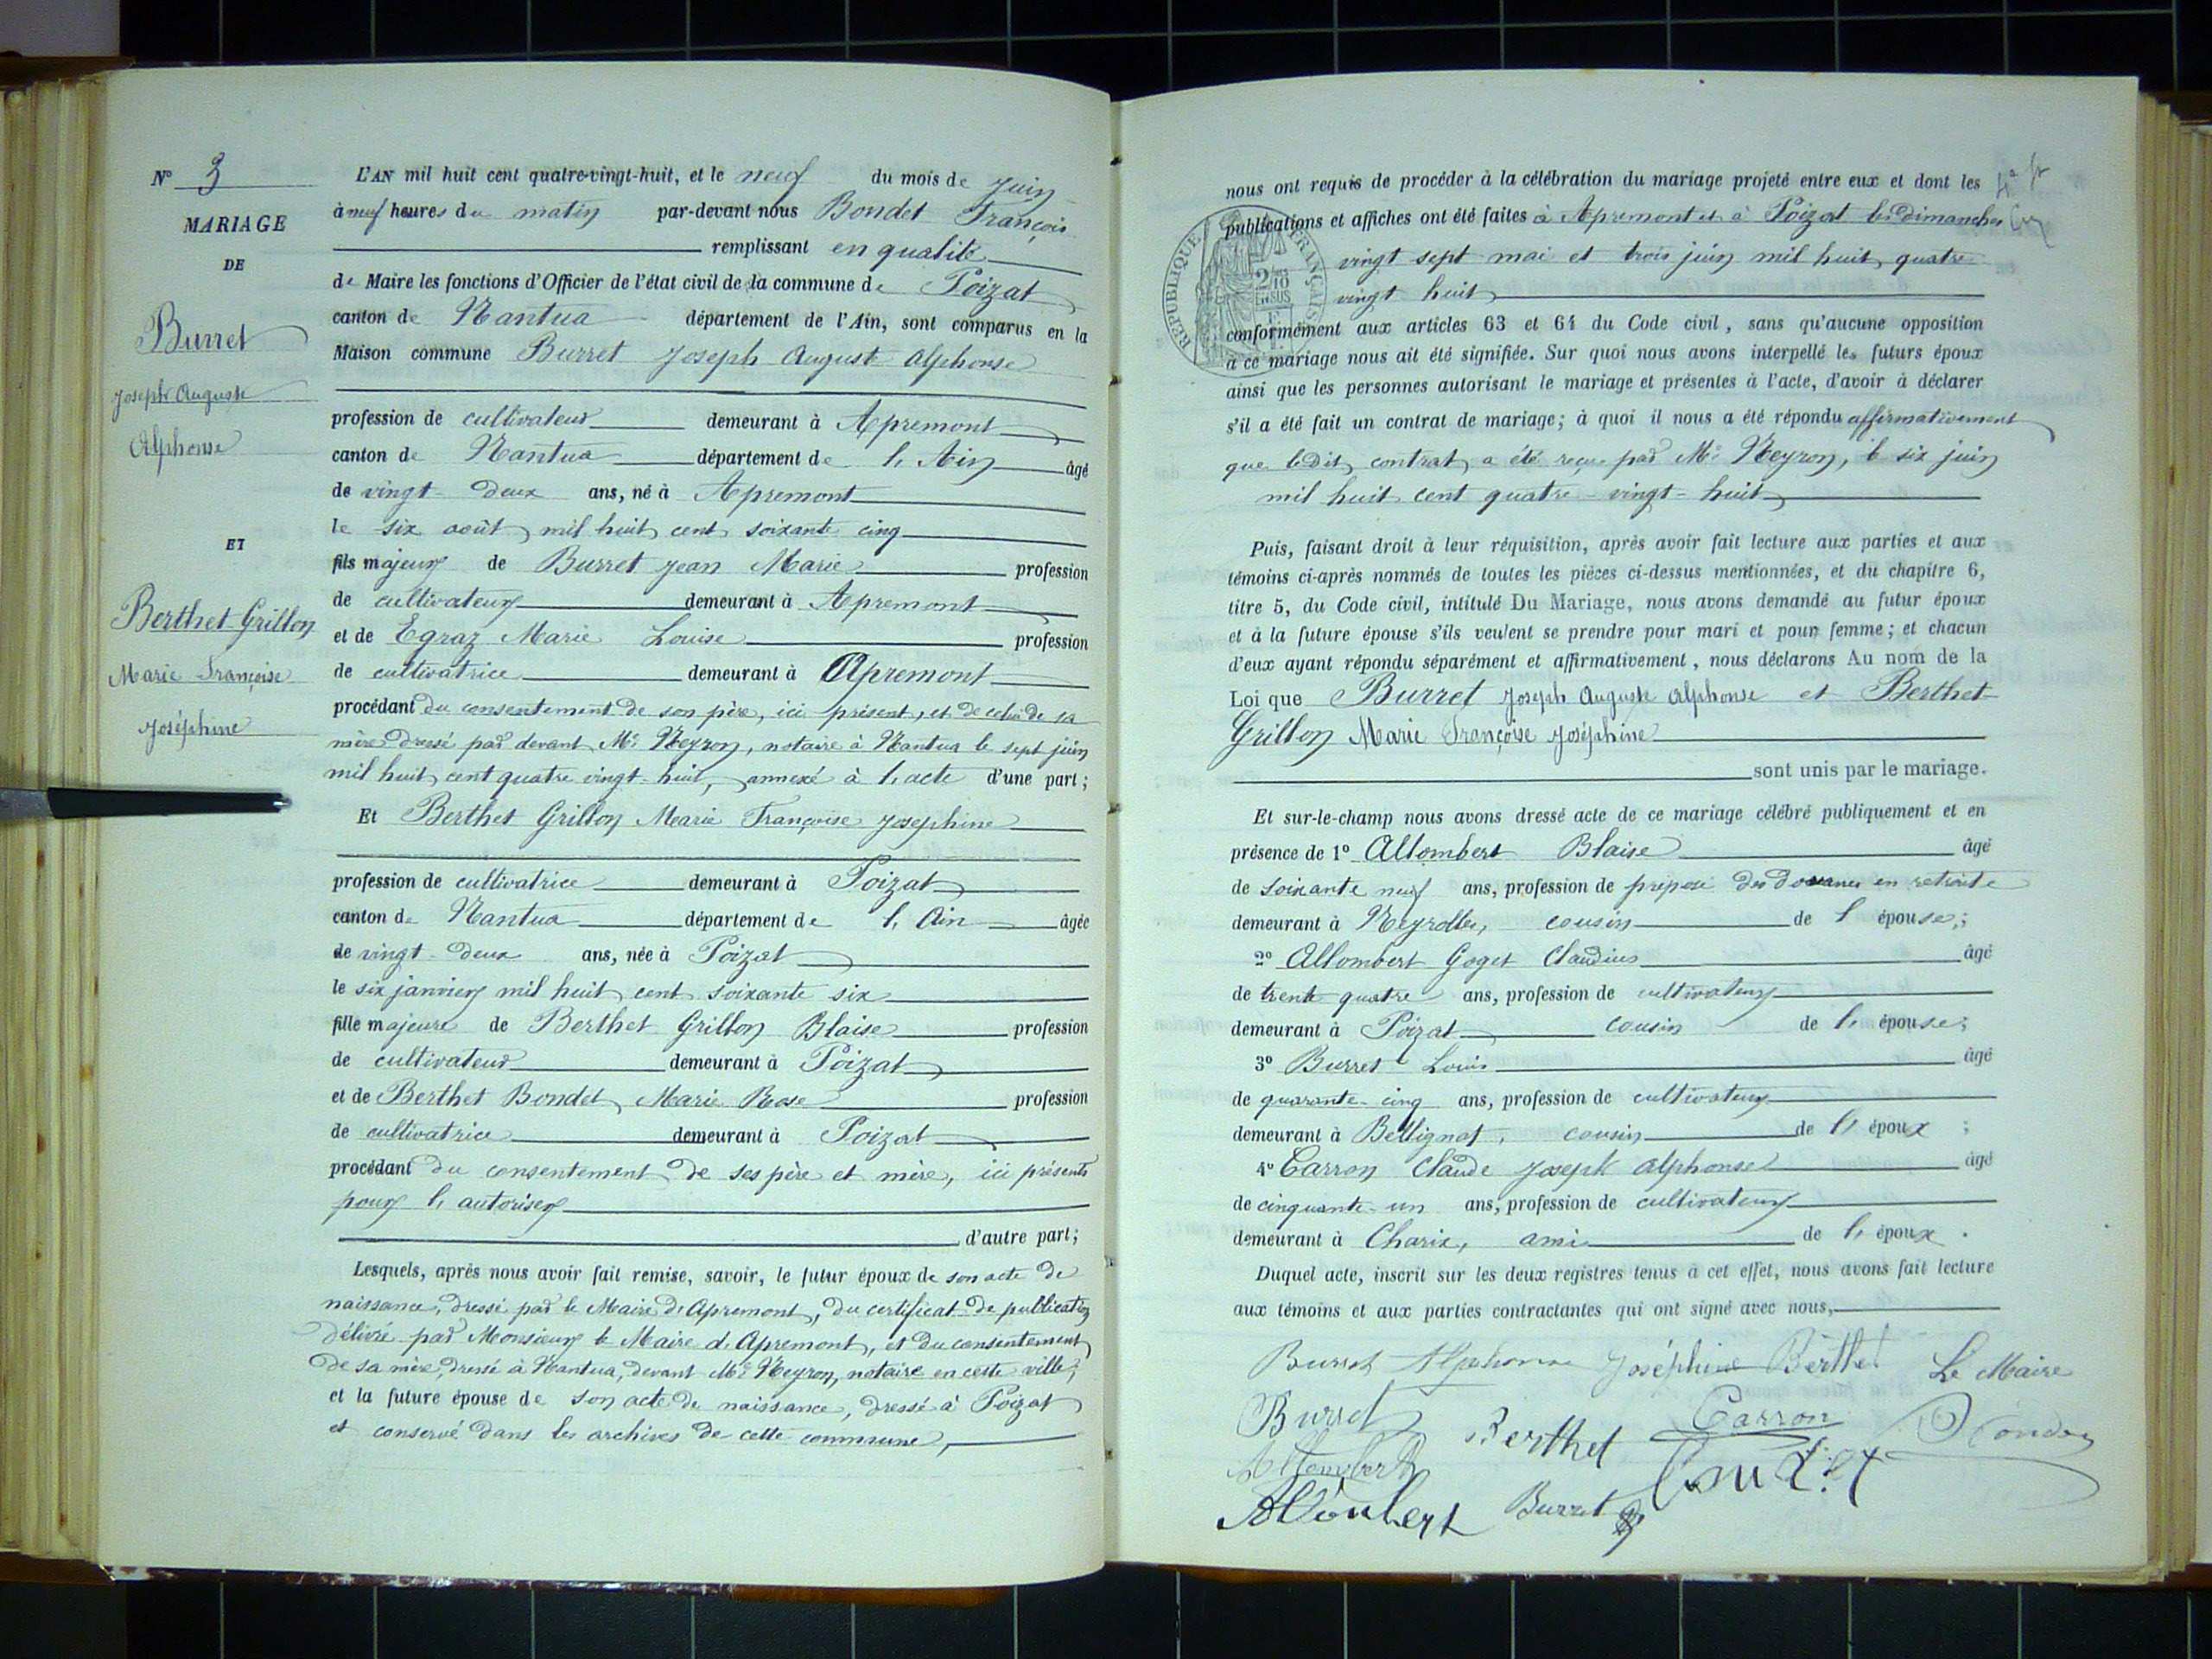 N° 3
MARIAGE
DE
Burret
Joseph Auguste
Alphonse
ET
Berthet-Grillon
Marie Françoise
Joséphine
L'AN mil huit cent quatre-vingt-huit, et le neuf du mois de Juin
à neuf heures du matin par-devant nous Bondet François
remplissant en qualité
de Maire les fonctions d'Officier de l'état civil de la commune de Poizat
canton de Nantua département de l'Ain, sont comparus en la
Maison commune Burret Joseph August Alphonse
profession de cultivateur demeurant à Apremont
canton de Nantua département de l'Ain âgé
de vingt-deux ans, né à Apremont
le six août mil huit cent soixante cinq
fils majeur de Burret Jean Marie profession
de cultivateur demeurant à Apremont
et de Egraz Marie Louise profession
de cultivatrice demeurant à Apremont
procédant du consentement de son père, ici présent, et de celui de sa
mère dressé par devant Me Neyron, notaire à Nantua le sept juin
mil huit cent quatre vingt-huit, annexé à l'acte d'une part;
Et Berthet Grillon Marie Françoise Josephine
profession de cultivatrice demeurant à Poizat
canton de Nantua département de l'Ain âgée
de vingt-deux ans, née à Poizat
le six janvier mil huit cent soixante six
fille majeure de Berthet Grillon Blaise profession
de cultivateur demeurant à Poizat
et de Berthet Bondet Marie Rose profession
de cultivatrice demeurant à Poizat
procédant du consentement de ses père et mère, ici présents
pour l'autoriser
d'autre part;
Lesquels, après nous avoir fait remise, savoir, le futur époux de son acte de
naissance, dressé par le Maire d'Apremont, du certificat de publication
délivré par Monsieur le Maire d'Apremont, et du consentement
de sa mère, dressé à Nantua, devant Me Neyron, notaire en cette ville,
et la future épouse de son acte de naissance, dressé à Poizat
et conservé dans les archives de cette commune,
nous ont requis de procéder à la célébration du mariage projeté entre eux et dont les
publications et affiches ont été faites à Apremont et à Poizat les dimanches
vingt sept mai et trois juin mil huit quatre
vingt huit
RÉPUBLIQUE FRANÇAISE
2/10 EN SUS
conformément aux articles 63 et 64 du Code civil, sans qu'aucune opposition
à ce mariage nous ait été signifiée. Sur quoi nous avons interpellé les futurs époux
ainsi que les personnes autorisant le mariage et présentes à l'acte, d'avoir à déclarer
s'il a été fait un contrat de mariage; à quoi il nous a été répondu affirmativement
que ledit contrat a été reçu par Me Neyron, le six juin
mil huit cent quatre-vingt-huit
Puis, faisant droit à leur réquisition, après avoir fait lecture aux parties et aux
témoins ci-après nommés de toutes les pièces ci-dessus mentionnées, et du chapitre 6,
titre 5, du Code civil, intitulé Du Mariage, nous avons demandé au futur époux
et à la future épouse s'ils veulent se prendre pour mari et pour femme; et chacun
d'eux ayant répondu séparément et affirmativement, nous déclarons Au nom de la
Loi que Burret Joseph Auguste Alphonse et Berthet
Grillon Marie Françoise Joséphine
sont unis par le mariage.
Et sur-le-champ nous avons dressé acte de ce mariage célébré publiquement et en
présence de 1° Allombert Blaise âgé
de soixante neuf ans, profession de préposé des douanes en retraite
demeurant à Neyrolles, cousin de l'épouse;
2° Allombert Goget Claudius âgé
de trente quatre ans, profession de cultivateur
demeurant à Poizat cousin de l'épouse;
3° Burret Louis âgé
de quarante-cinq ans, profession de cultivateur
demeurant à Bellignat, cousin de l'époux;
4° Carron Claude Joseph Alphonse âgé
de cinquante-un ans, profession de cultivateur
demeurant à Charix, ami de l'époux.
Duquel acte, inscrit sur les deux registres tenus à cet effet, nous avons fait lecture
aux témoins et aux parties contractantes qui ont signé avec nous,
Burret Alphonse Joséphine Berthet Le Maire
Burret Berthet Carron Bondet
Allombert
Allombert Burret